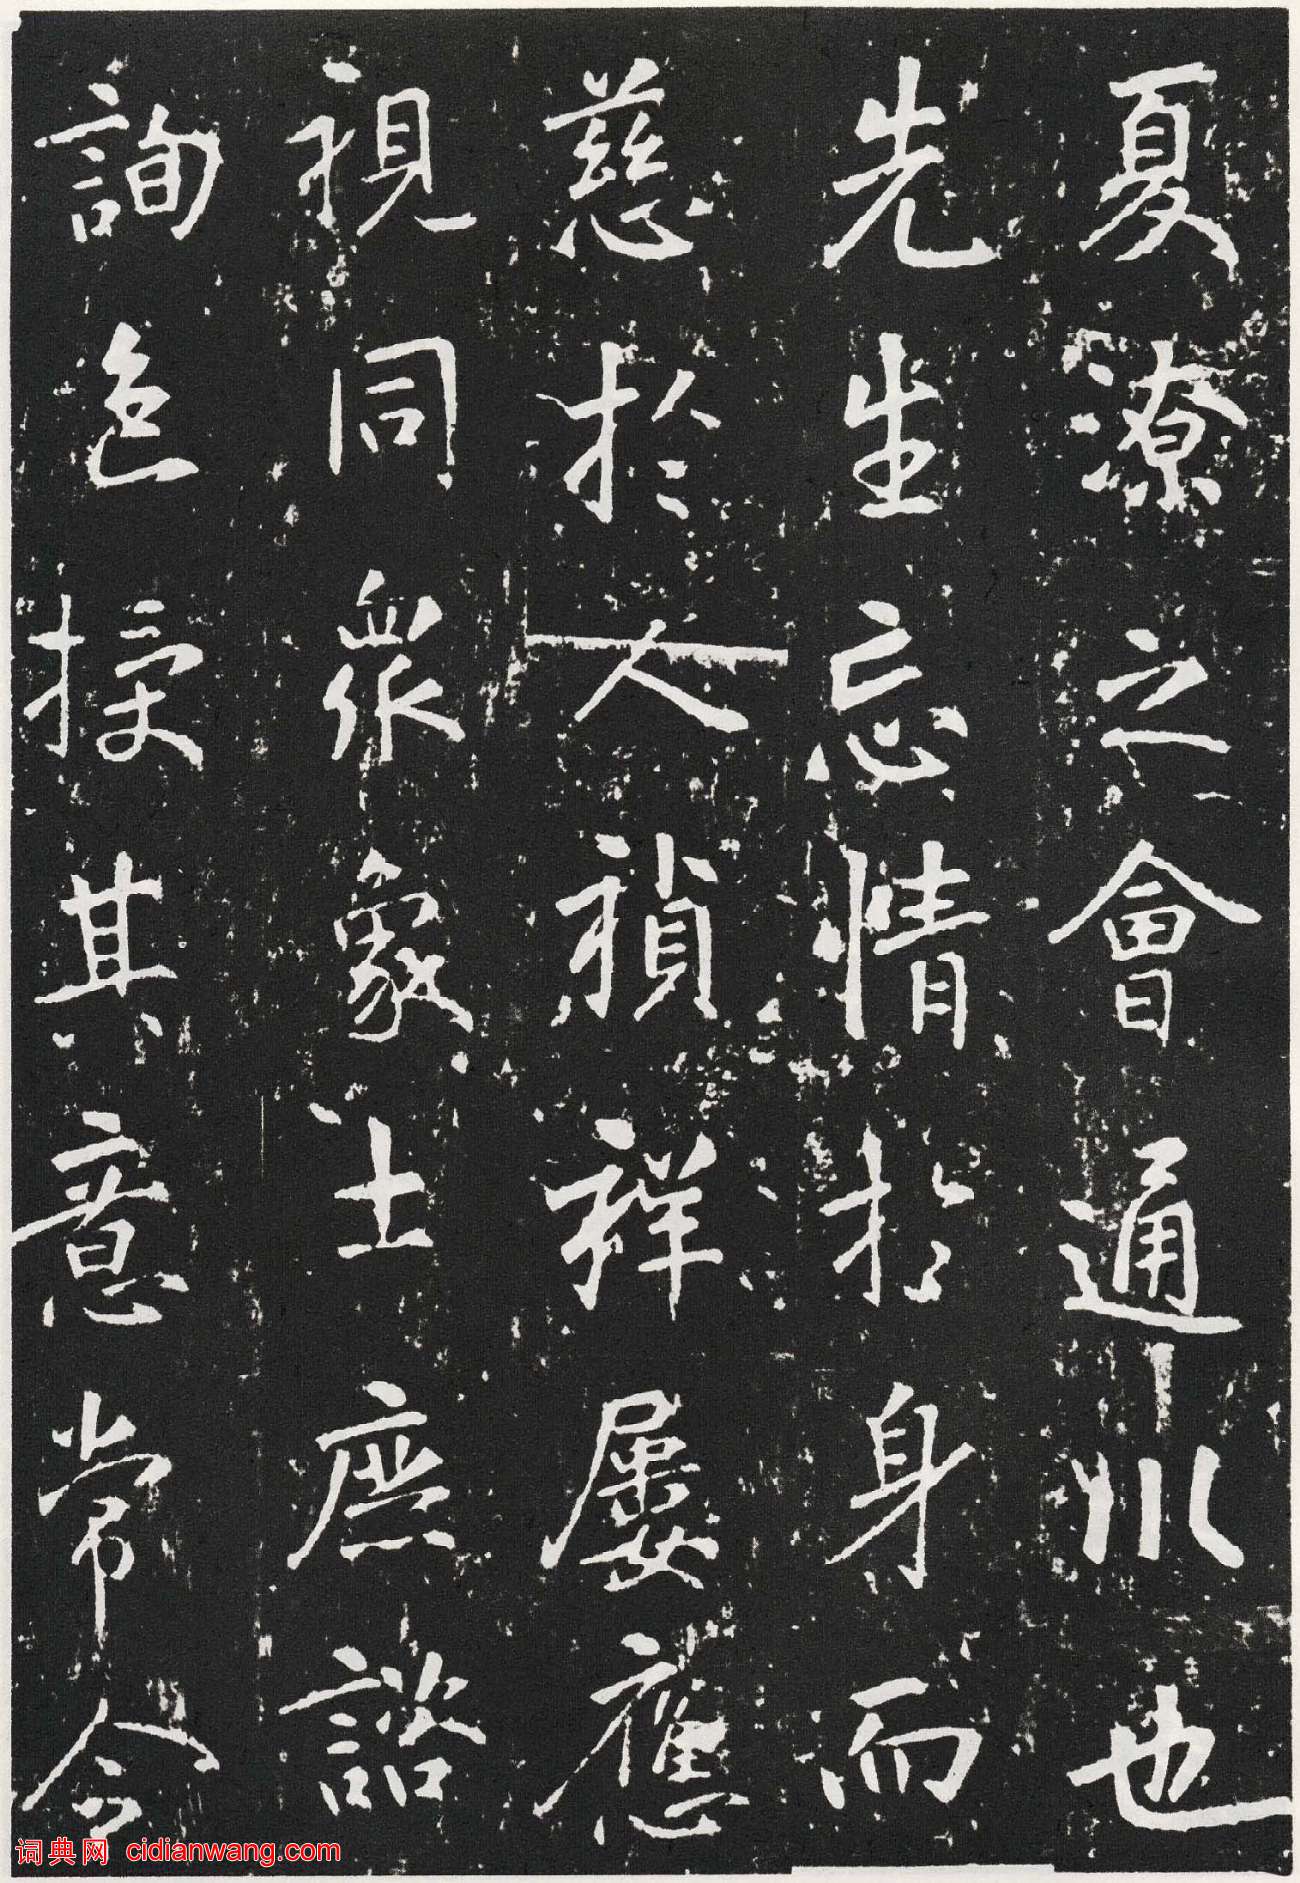 夏潦之會通川也
先生忘情於身而
慈於人禎祥屢應
視同衆象士庶諮
詢色授其意常令
词典网 cidianwang.com